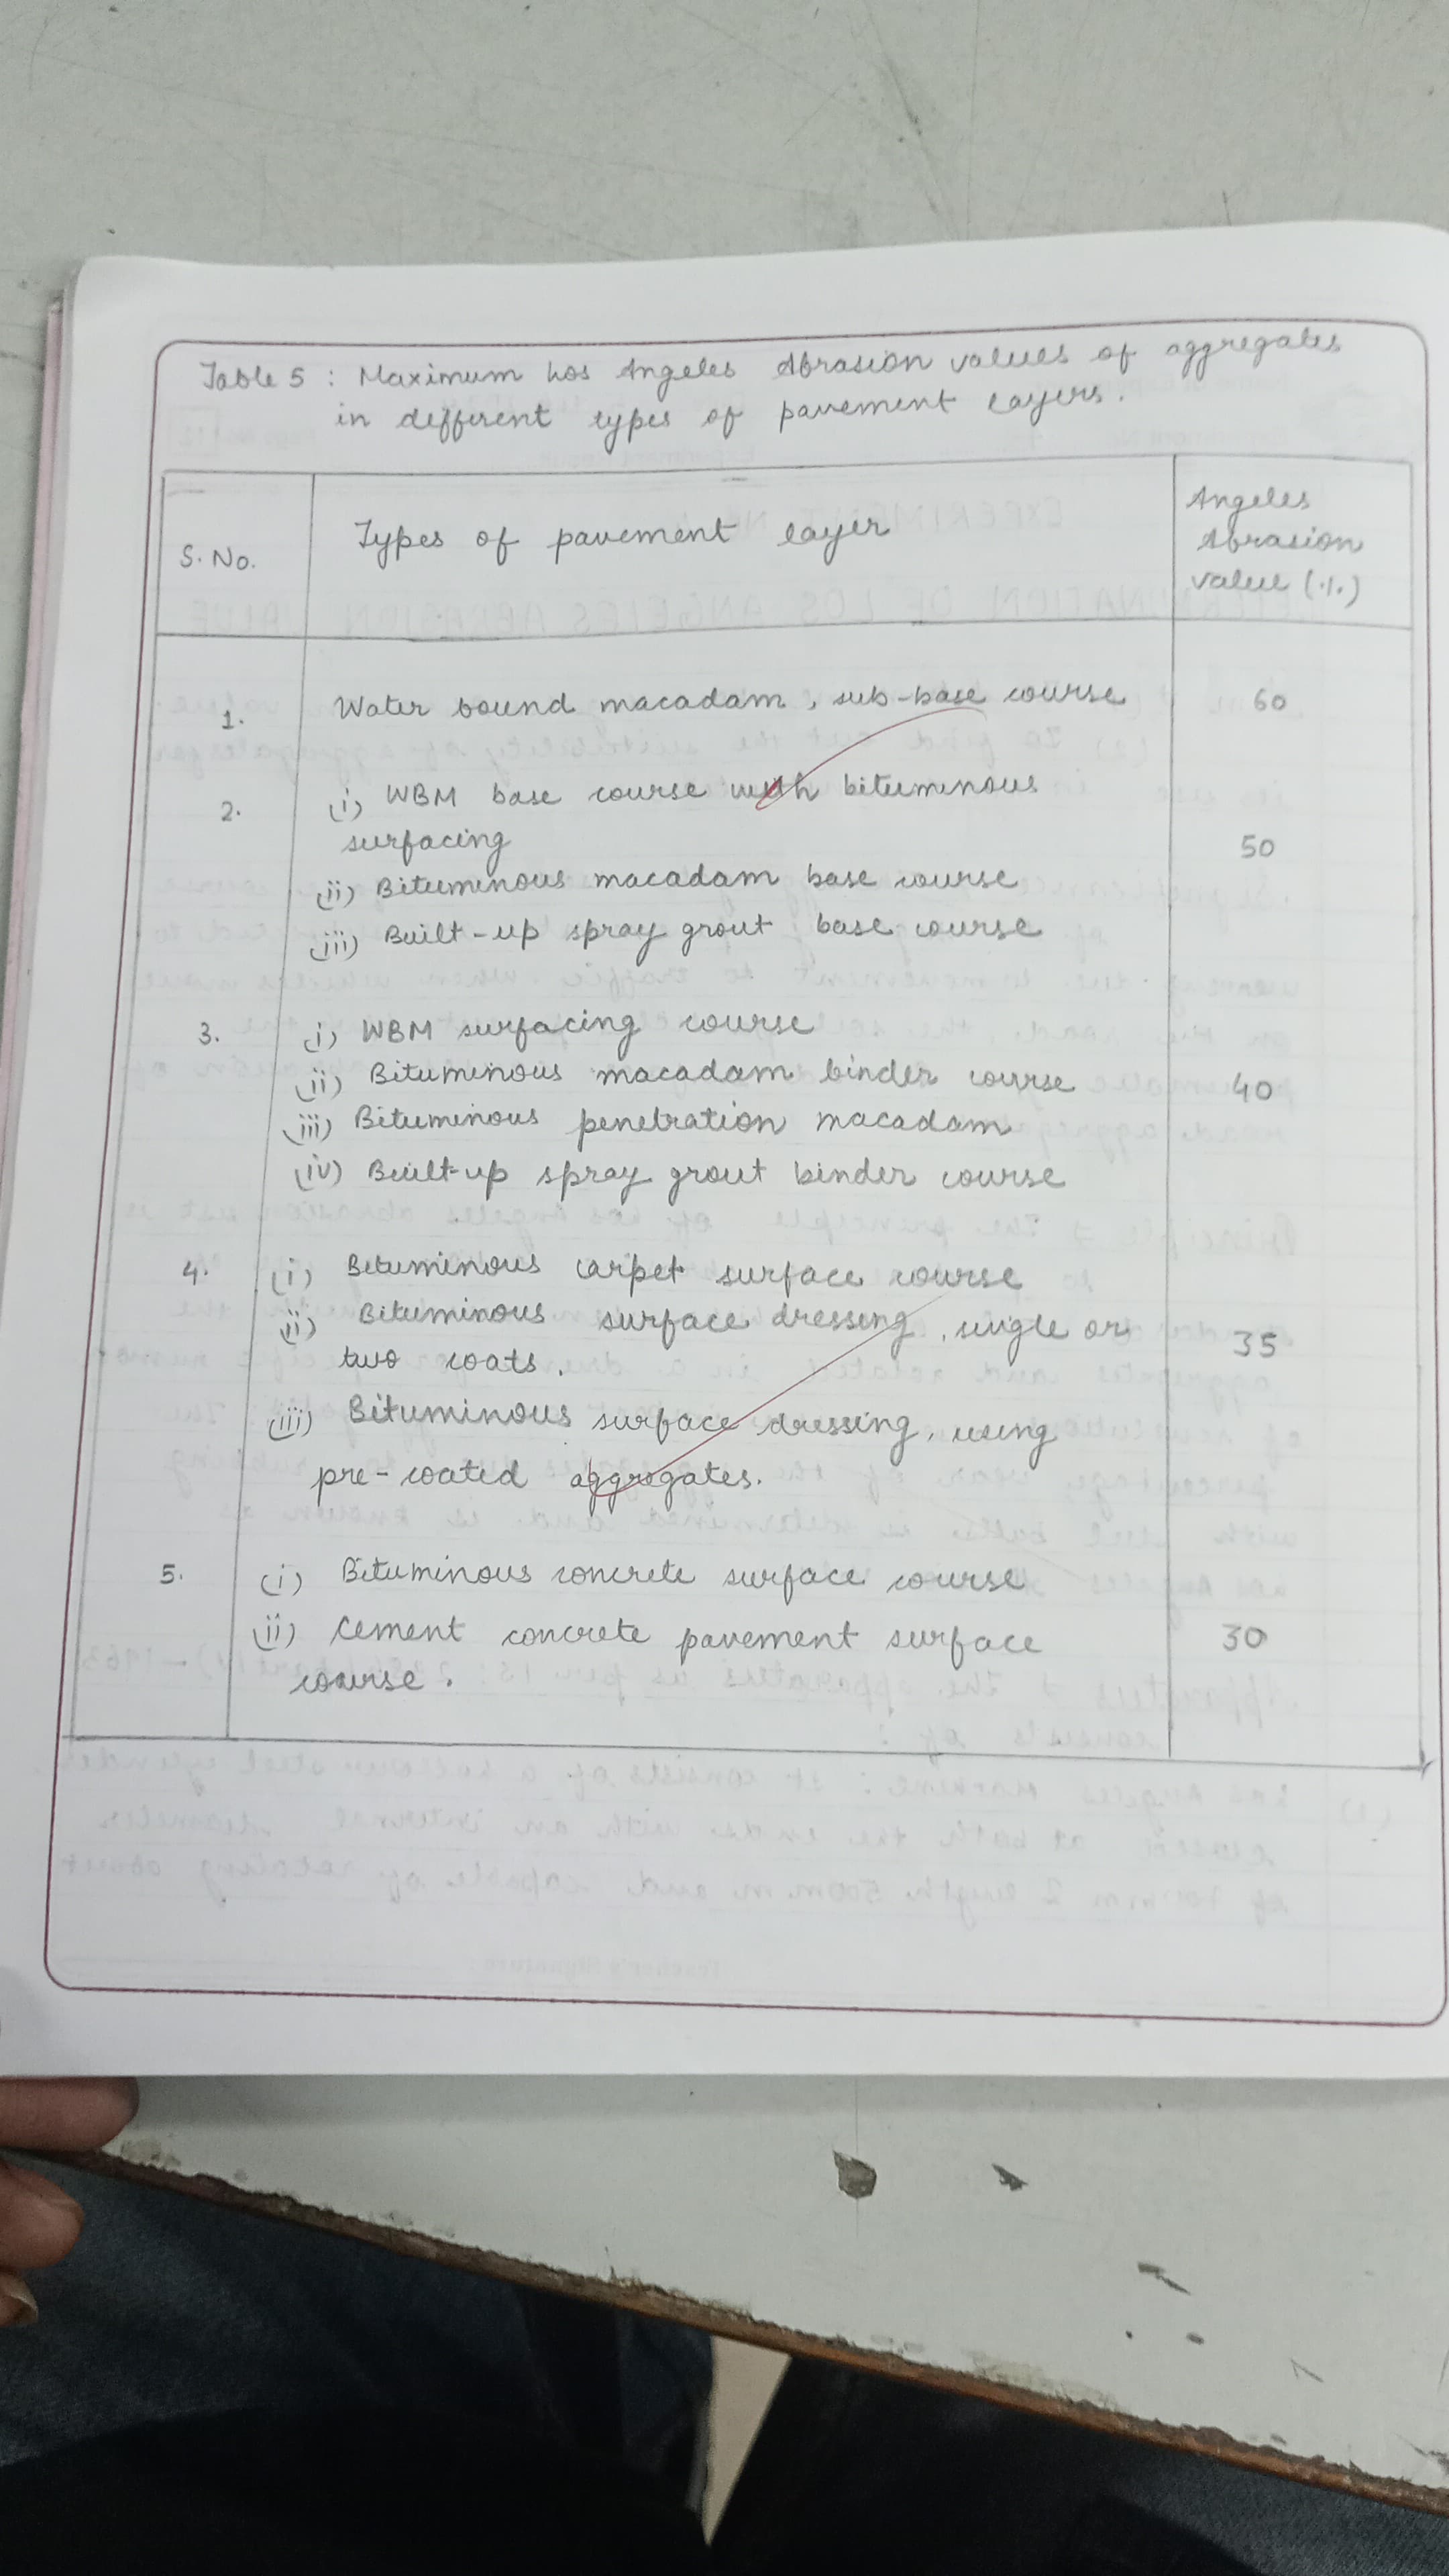 Table 5 : Maximum Los Angeles Abrasion values of aggregates
in different types of pavement layers.
S. No.
Types of pavement layer
Angeles
Abrasion
value (%)
1.
Water bound macadam, sub-base course
60
2.
(i) WBM base course with bituminous
surfacing
50
(ii) Bituminous macadam base course
(iii) Built-up spray grout base course
3.
(i) WBM surfacing course
(ii) Bituminous macadam binder course
40
(iii) Bituminous penetration macadam
(iv) Built-up spray grout binder course
4.
(i) Bituminous carpet surface course
(ii) Bituminous surface dressing, single or
35
two coats.
(iii) Bituminous surface dressing, using
pre-coated aggregates.
5.
(i) Bituminous concrete surface course
(ii) Cement concrete pavement surface
30
course.